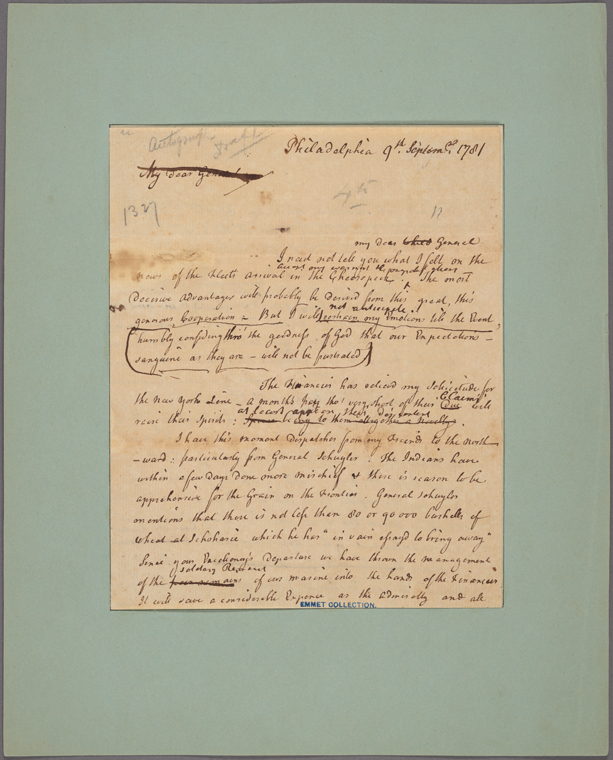 Autograph
Philadelphia 9th. Septemr. 1781
My dear General
1327
11
my dear General
I need not tell you what I felt on the
news of the Fleets arrival in the Chesopeek. The most
Decisive advantages will probably be derived from this great, this
generous Cooperation - But I will not anticipate
restrain my Emotions till the Event,
humbly confiding thro' the goodness of God that our Expectations -
sanguine as they are - will not be frustrated
The Financier has relieved my Solicitude for
the New York Line - a months pay tho' very short of their Claims
Due will
raise their Spirits: at Least
to them altogether a Novelty.
I have this moment Dispatches from my Friends to the North
-ward: particularly from General Schuyler: The Indians have
within a few Days Done more mischief & there is reason to be
apprehensive for the Grain on the Frontier. General Schuyler
mentions that there is not less then 80 or 90 000 bushells of
wheat at Schoharie which he has "in vain essay'd to bring away"
Since your Excellency's Departure we have thrown the management
of the solitary Remnant
of our marine into the hands of the Financier
It will save a considerable Expence as the admiralty and all
EMMET COLLECTION.